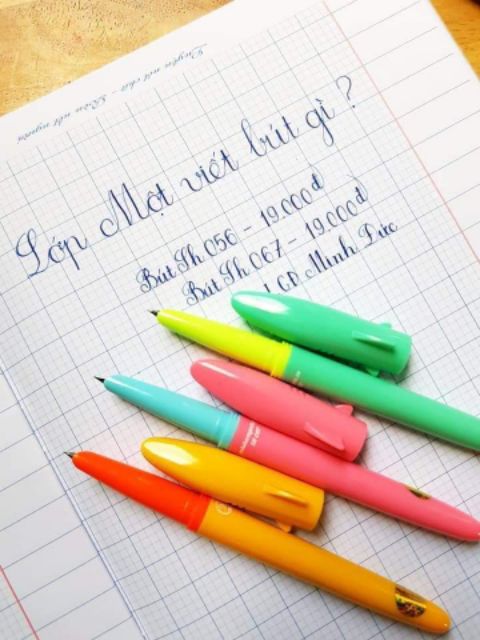 Luyện nét chữ - Rèn nết người
Lớp Một viết bút gì ?
Bút Sh 056 - 19.000đ
Bút Sh 067 - 19.000đ
CP. Minh Đức